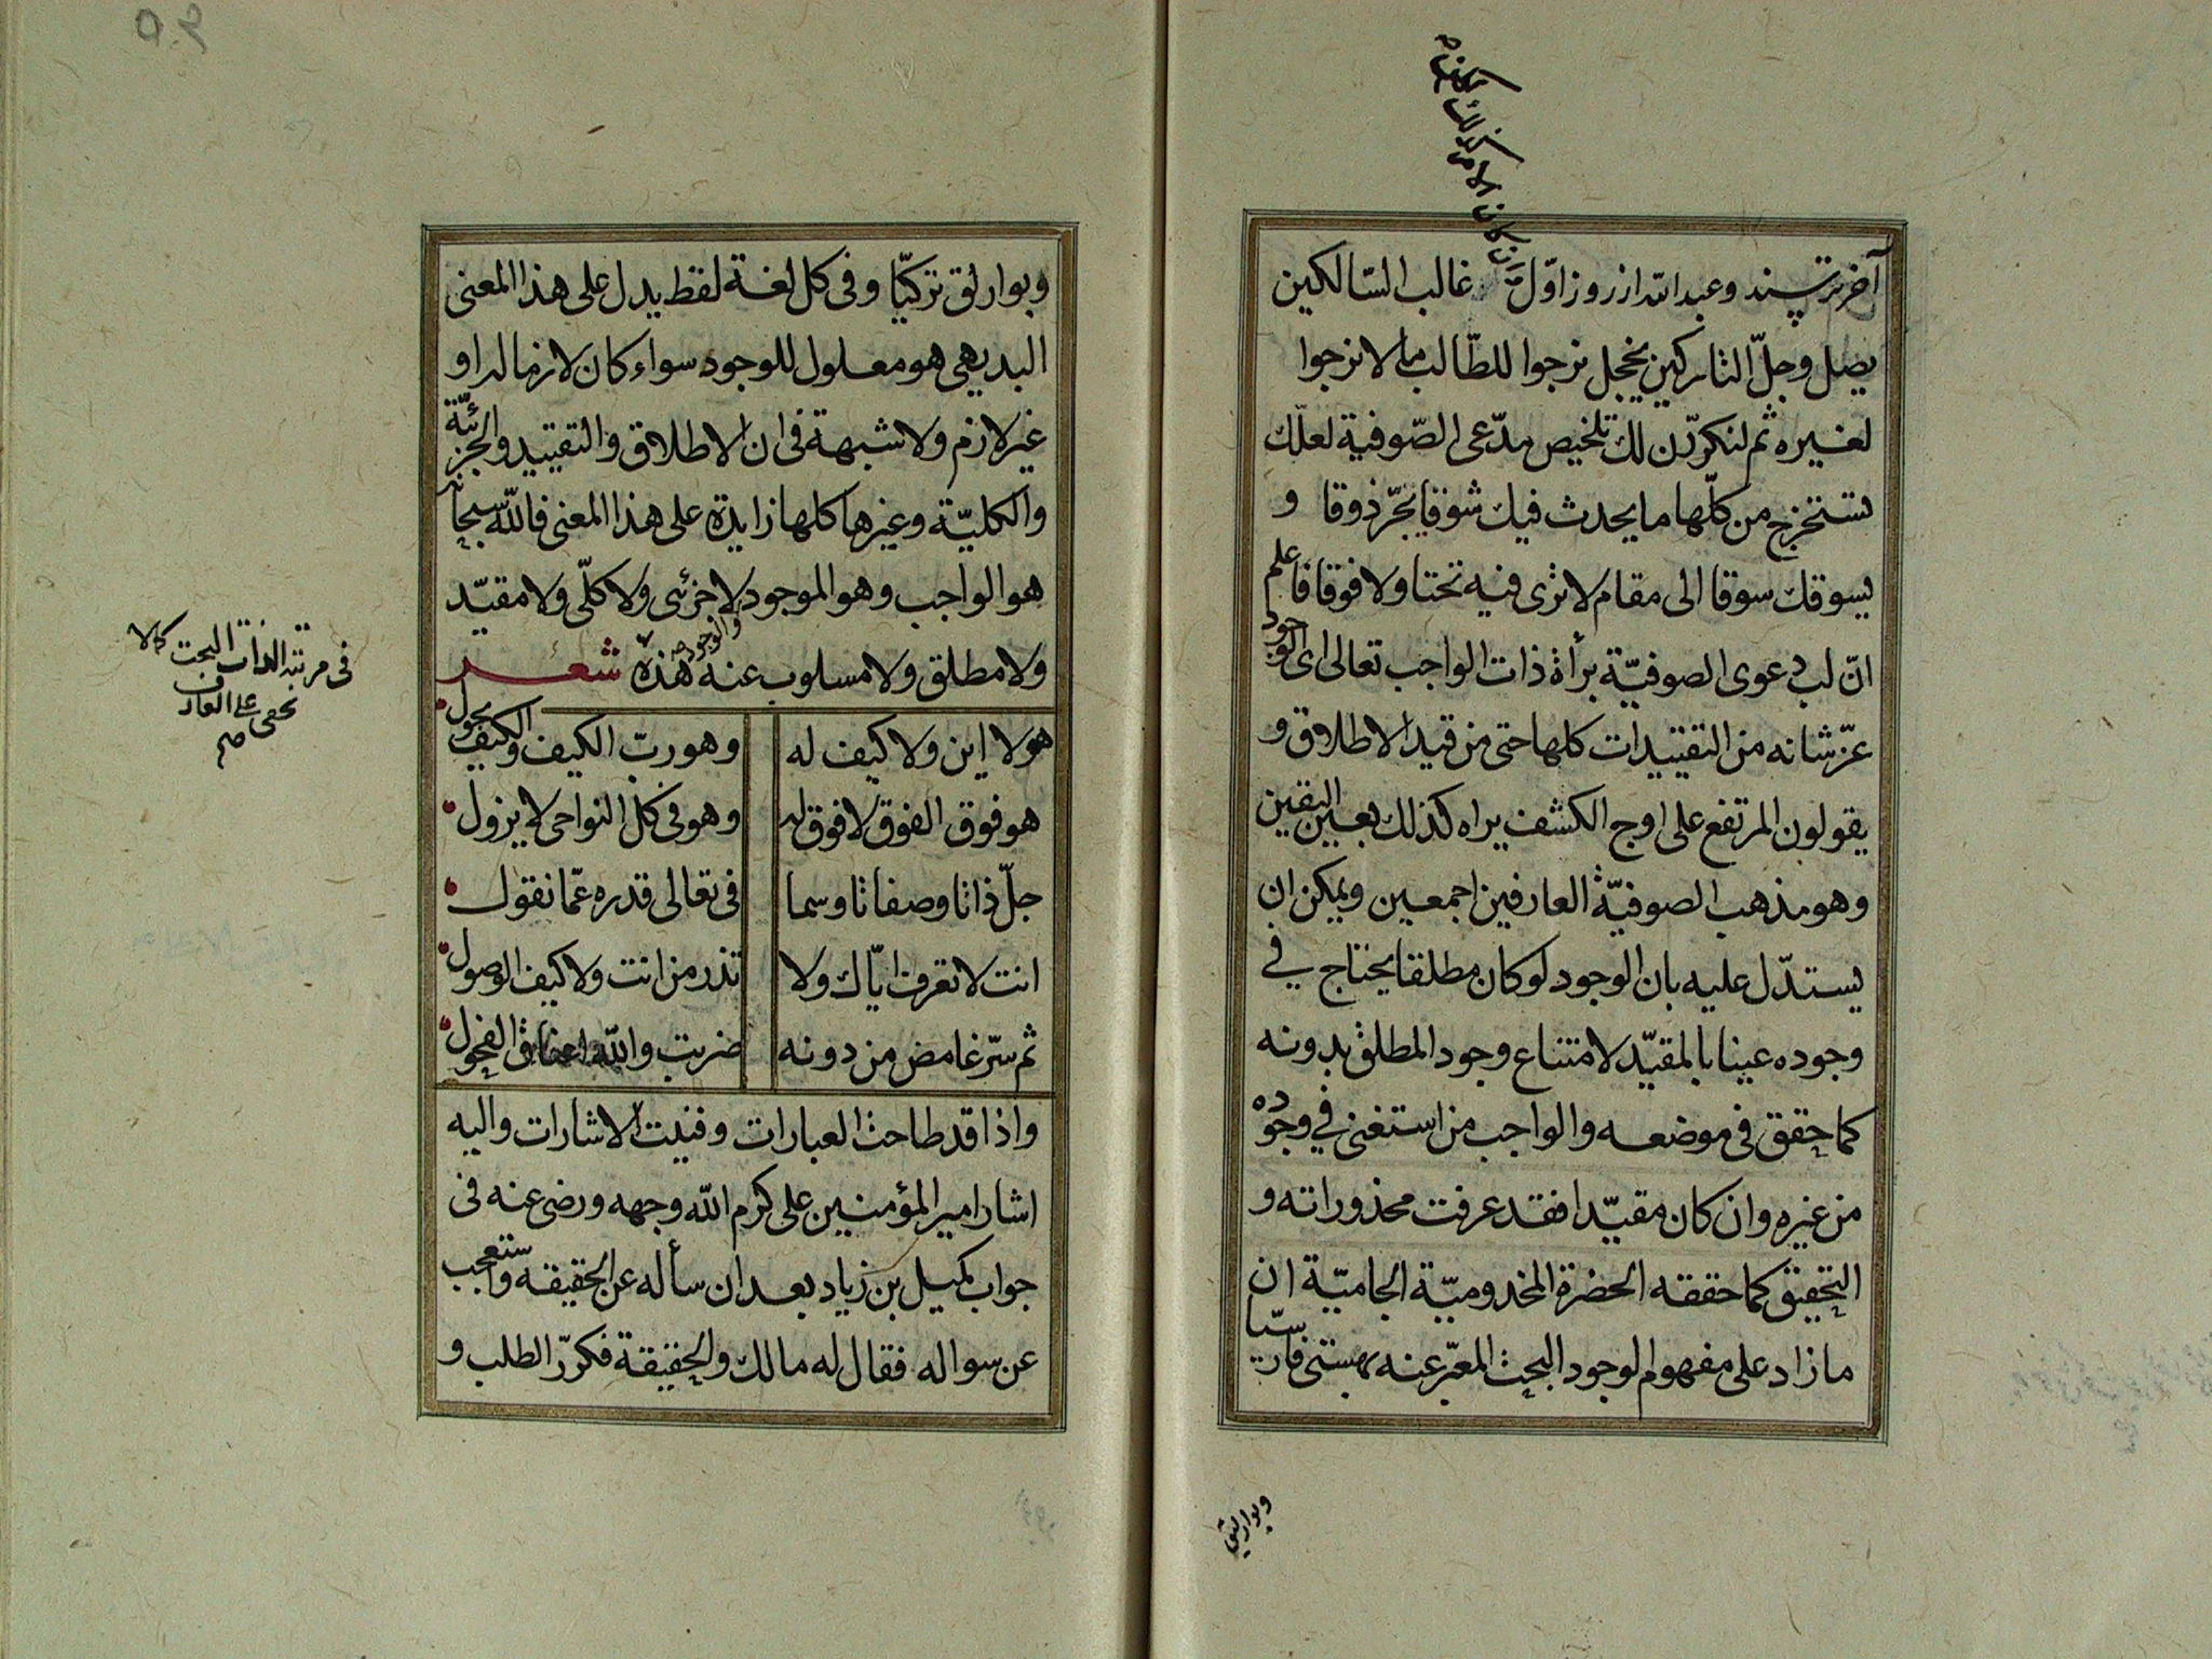 آخر ترسند وعبد الله از روز اوّل غالب السّالكين
يصل وجلّ التاركين يخجل نرجوا للطّالب ما لا نرجوا
لغيره ثم لنكررّن لك تلخيص مدّعى الصّوفية لعلّك
تستخرج من كلّها ما يحدث فيك شوقا يجّر ذوقا و
يسوقك سوقا الى مقام لا ترى فيه تحتا ولا فوقا فاعلم
انّ لب دعوى الصوفيّة برأة ذات الواجب تعالى اى الوجود
عزّ شانه من التقييدات كلها حتى من قيد الاطلاق و
يقولون المرتفع على اوج الكشف يراه كذلك بعين اليقين
وهو مذهب الصوفيّة العارفين اجمعين ويمكن ان
يستدّل عليه بان الوجود لو كان مطلقا يحتاج في
وجوده عينا بالمقيّد لامتناع وجود المطلق بدونه
كما حقق في موضعه والواجب من استغنى في وجوده
من غيره وان كان مقيّدا فقد عرفت محذوراته و
التحقيق كما حققه الحضرة المخدوميّة الجاميّة ان
ما زاد على مفهوم الوجود البحث المعبّر عنه بهستى فارسيّا
وبوارلق
وبوارلق تركيّا وفى كل لغة لفظ يدل على هذا المعنى
البديهى هو معلول للوجود سواء كان لازما له او
غير لازم ولا شبهة فى ان الاطلاق والتقييد والجزئيّة
والكليّة وغيرها كلها زايدة على هذا المعنى فالله سبحانه
هو الواجب وهو الموجود لا جزئى ولا كلّى ولا مقيّد
ولا مطلق ولا مسلوب عنه هذه شعر
هو لا اين ولا كيف له وهو ربّ الكيف والكيف يحول
هو فوق الفوق لا فوق له وهو فى كل النواحى لا يزول
جلّ ذاتا وصفاتا وسما فى تعالى قدره عمّا نقول
انت لا تعرف ايّاك ولا تدر من انت ولا كيف الوصول
ثم سرّ غامض من دونه ضربت والله اعناق الفحول
واذا قد طاحت العبارات وفنيت الاشارات واليه
اشار امير المؤمنين على كرم الله وجهه ورضى عنه فى
جواب كميل بن زياد بعد ان سأله عن الحقيقه واستعجب
عن سواله فقال له مالك والحقيقة فكرّر الطلب و
فى مرتبة الذات البحت كما لا
يخفى على العارف